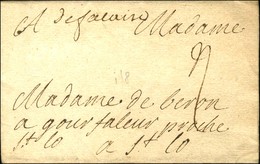 A de falaise Madame
9
Madame de beron
a gourfaleur proche
st lo a st lo